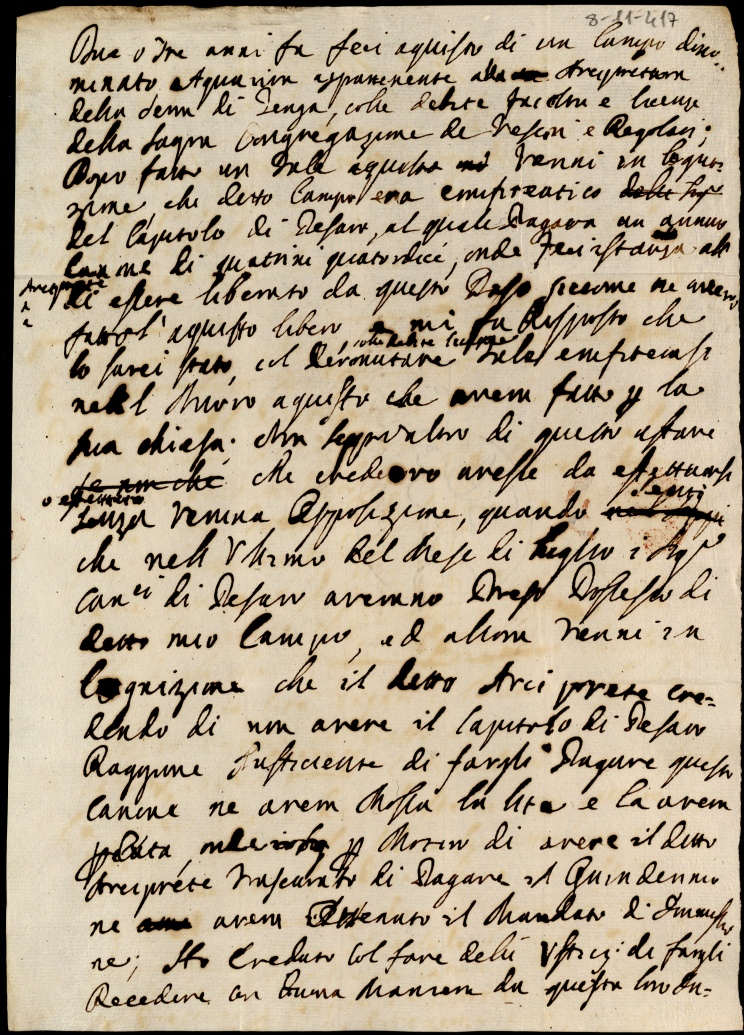 8-11-417
Due o tre anni fà feci aquisto di un Campo deno-
minato Aquaviva appartenente alla Arcipretura
della Serra di Genga, colle debite facoltà e licenze
della Sagra Congregazione de Vescovi e Regolari;
Dopo fatto un tale aquisto venni in cogni-
zione, che detto Campo era emfiteutico
del Capitolo di Pesaro, al quale pagava un annuo
Canone di quatrini quatordici, onde feci istanza all
Arciprete
di essere liberato da questo peso, siccome ne avevo
fatto l'aquisto libero, e mi fu risposto che
colle debite licenze
lo sarei stato, col permutare tale emfiteusi
nell nuovo aquisto che aveva fatto p la
sua chiesa. di questo afare
se non che che credevo avesse da effettuarsi
o effettuato
senza veruna opposizione, quando
sentij
che nell ultimo del Mese di luglio i Sig.ri
Can.ci di Pesaro avevano preso possesso di
detto mio Campo, ed allora venni in
cognizione che il detto Arciprete cre=
dendo di non avere il Capitolo di Pesaro
Raggione sufficiente di fargli pagare questo
Canone ne aveva mossa la lite e la aveva
p motivo di avere il detto
Arciprete trascurato di pagare il Quindennio
ne aveva ottenuto il Mandato di Immissio
ne; Ho creduto col fare delli Ufizi di fargli
Recedere con buona maniera da questa loro in=